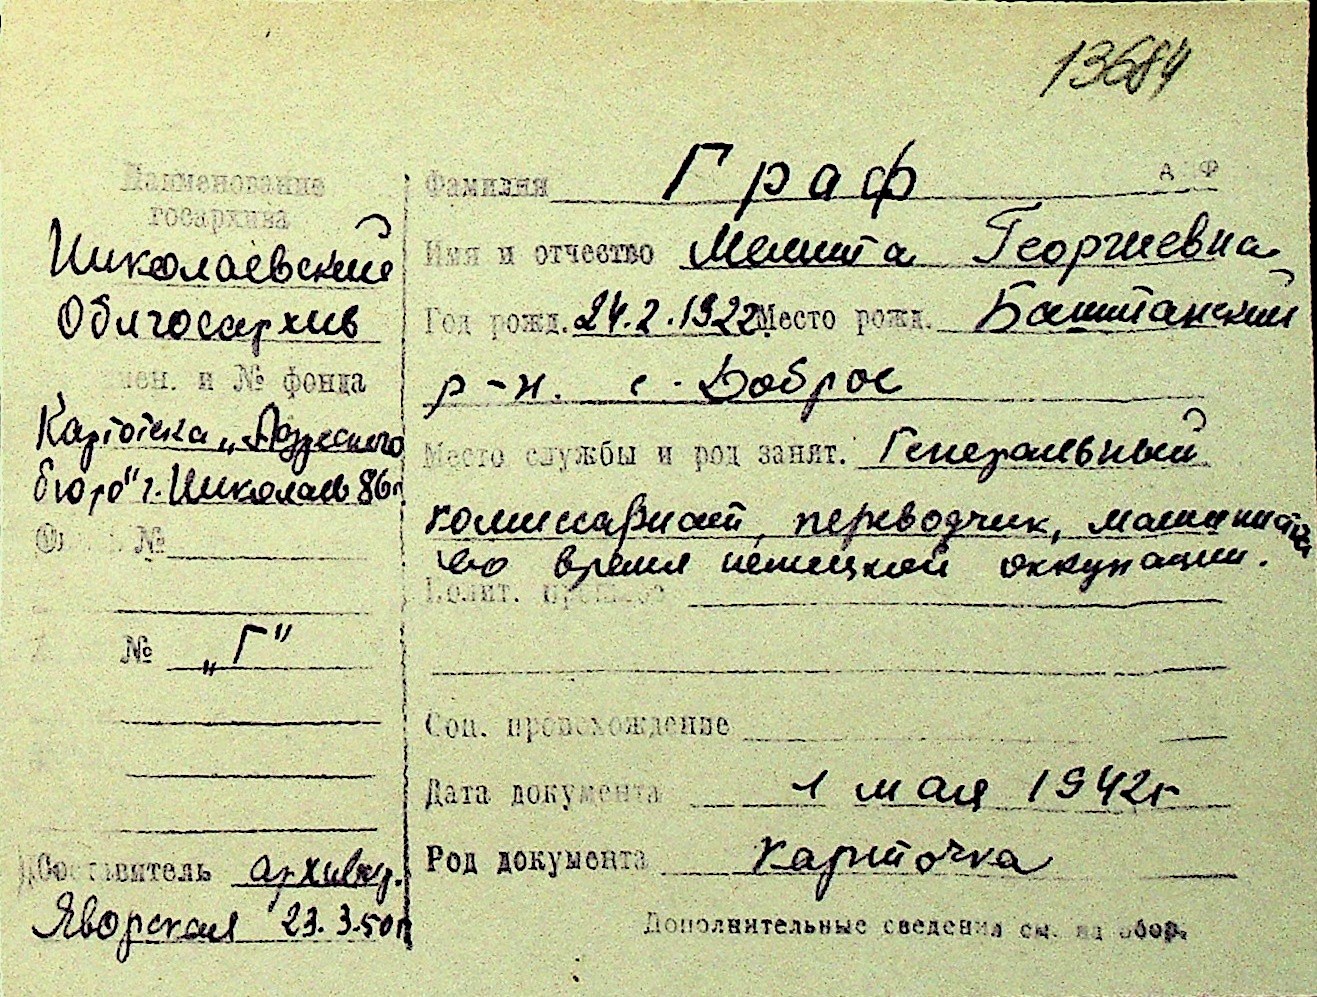 13684
Наименование
госархива
Николаевский
Облгосархив
мен. и № фонда
Картотека „Адресного
бюро" г. Николаев
№
№ „Г"
Составитель архивар.
Яворская 23.3.50г
Фамилия Граф
Имя и отчество Мелита Георгиевна
Год рожд. 24.2.1922 Место рожд. Баштанский
р-н. с. Доброе
Место службы и род занят. Генеральный
комиссариат, переводчик, машинистка
во время немецкой оккупации.
Полит.
Соц. происхождение
Дата документа 1 мая 1942г
Род документа карточка
Дополнительные сведения см. на обор.